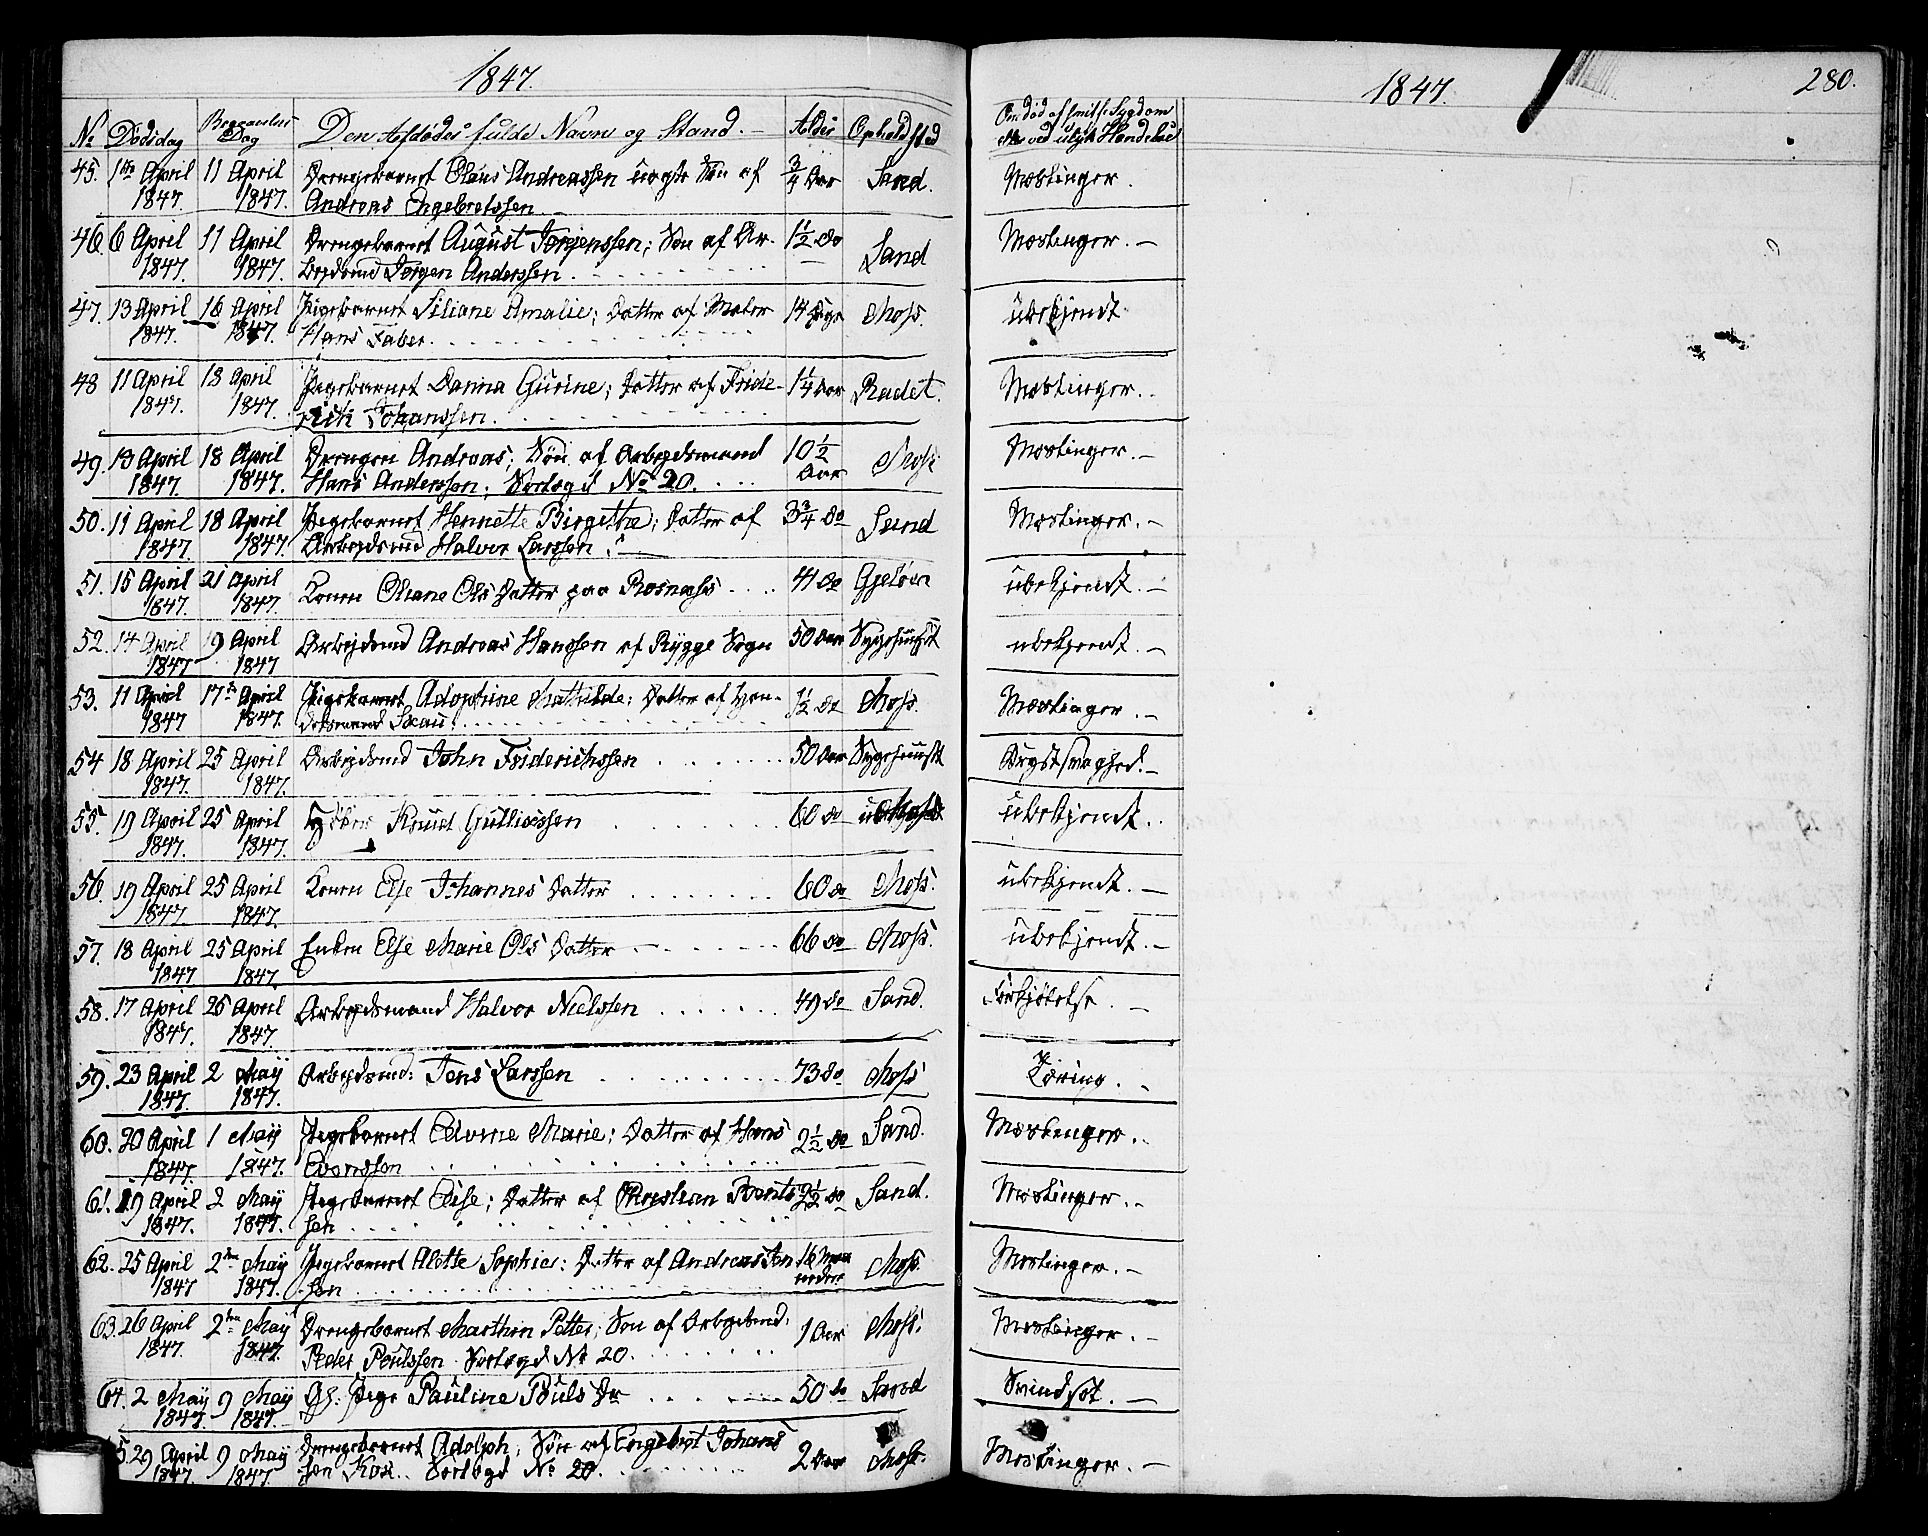 1847.
No Dødsdag Begravelses Dag Den Afdødes fulde Navn og Stand. Alder Opholdsted
45. 1ste April 11 April Drengebarnet Olaus Andreassen uægte Søn af 3/4 Aar Sand.
1847. 1847. Andreas Engebretssen
46. 6 April 11 April Drengebarnet August Jørjenssen; Søn af Ar- 1½ do Sand
1847. 1847. bejdsmd Jørgen Anderssen.
47. 13 April 16 April Pigebarnet Siliane Amalie; Datter af Maler 14 Dage Moss.
1847. 1847. Hans Faber.
48 11 April 18 April Pigebarnet Danna Gurine; Datter af Fride- 1¼ Aar Radet.
1847. 1847. rich Johanssen.
49. 13 April 18 April Drengen Andreas; Søn af Arbejdsmand 10½ Aar Moss
1847. 1847. Hans Anderssen; Vorlagd No 20.
50. 11 April 18 April Pigebarnet Hennette Birgethe; Datter af 3¾ do Sand
1847. 1847. Arbejdsmd Halvor Larssen.
51. 15 April 21 April Konen Oliane Ols Datter paa Rosnæss 41 do Gjeløen
1847. 1847.
52. 14 April 19 April Arbejdsmd Andreas Hanssen af Rygge Sogn 50 Aar Sygehuuset
1847 1847
53. 11 April 17de April Pigebarnet Adophine Mathilde; Datter af Han- 1½ do Moss.
1847 1847. delsmand Skau.
54 18 April 25 April Arbejdsmd John Friderichssen 50 Aar Sygehuuset
1847. 1847.
55. 19 April 25 April Knud Gullicssen 60 do
1847. 1847.
56. 19 April 25 April Konen Else Johannes Datter 60 do Moss.
1847 1847.
57. 18 April 25 April Enken Else Marie Ols Datter 66 do Moss.
1847 1847.
58. 17 April 26 April Arbejdsmand Halvor Nielssen 49 do Sand.
1847. 1847.
59. 23 April 2 May Arbejdsmd: Jens Larssen 73 do Moss
1847. 1847.
60. 20 April 1 May Pigebarnet Edvine Marie; Datter af Hans 2½ do Sand.
1847. 1847. Evenssen
61. 19 April 2 May Pigebarnet Else; Datter af Christian Bernts 2½ do Sand.
1847. 1847. sen
62. 25 April 2den May Pigebarnet Alette Sophie: Datter af Andreas Jen 16 Maaneder Moss.
1847 1847. sen
63. 26 April 2den May Drengebarnet Marthin Petter; Søn af Arbejdsmd. 1 Aar Moss.
1847. 1847. Peder Poulssen Vorlagd No 20.
64. 2 May 9 May Gl. Pige Pauline Pouls Dr 50 do Sand
1847. 1847.
65. 29 April 9 May Drengebarnet Adolph; Søn af Engebret Johans 2 Aar Moss.
1847. 1847. sen Vorlagd No 20.
1847.
280.
Om død af smitts. Sygdom
eller ved ulykk. Hændelser
Mæslinger.
Mæslinger. —
ubekjendt.
Mæslinger.
Mæslinger. —
Mæslinger. —
ubekjendt. —
ubekjendt. —
Mæslinger. —
Brystsvaghed. —
ubekjendt.
ubekjendt. —
ubekjendt. —
Forkjølelse. —
Tæring. —
Mæslinger. —
Mæslinger. —
Mæslinger. —
Mæslinger. —
Svindsot. —
Mæslinger. —